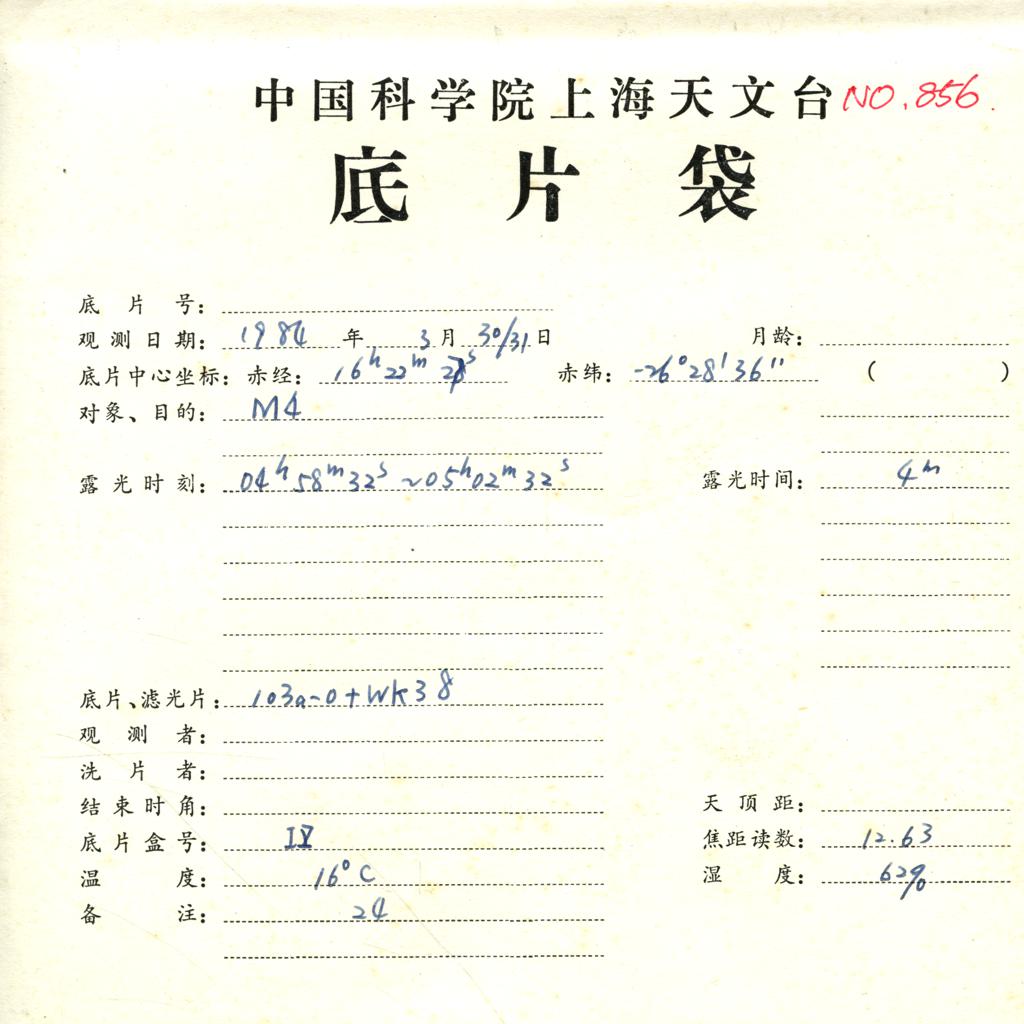 中国科学院上海天文台 NO.856.
底片袋
底片号:
观测日期: 1984 年 3 月 30/31 日 月龄:
底片中心坐标: 赤经: 16h 22m 赤纬: -26°28′36″ ( )
对象、目的: M4
露光时刻: 04h 58m 32s ~05h 02m 32s 露光时间: 4m
底片、滤光片: 103a-O+WK38
观测者:
洗片者:
结束时角: 天顶距:
底片盒号: IV 焦距读数: 12.63
温度: 16°C 湿度: 62%
备注: 24